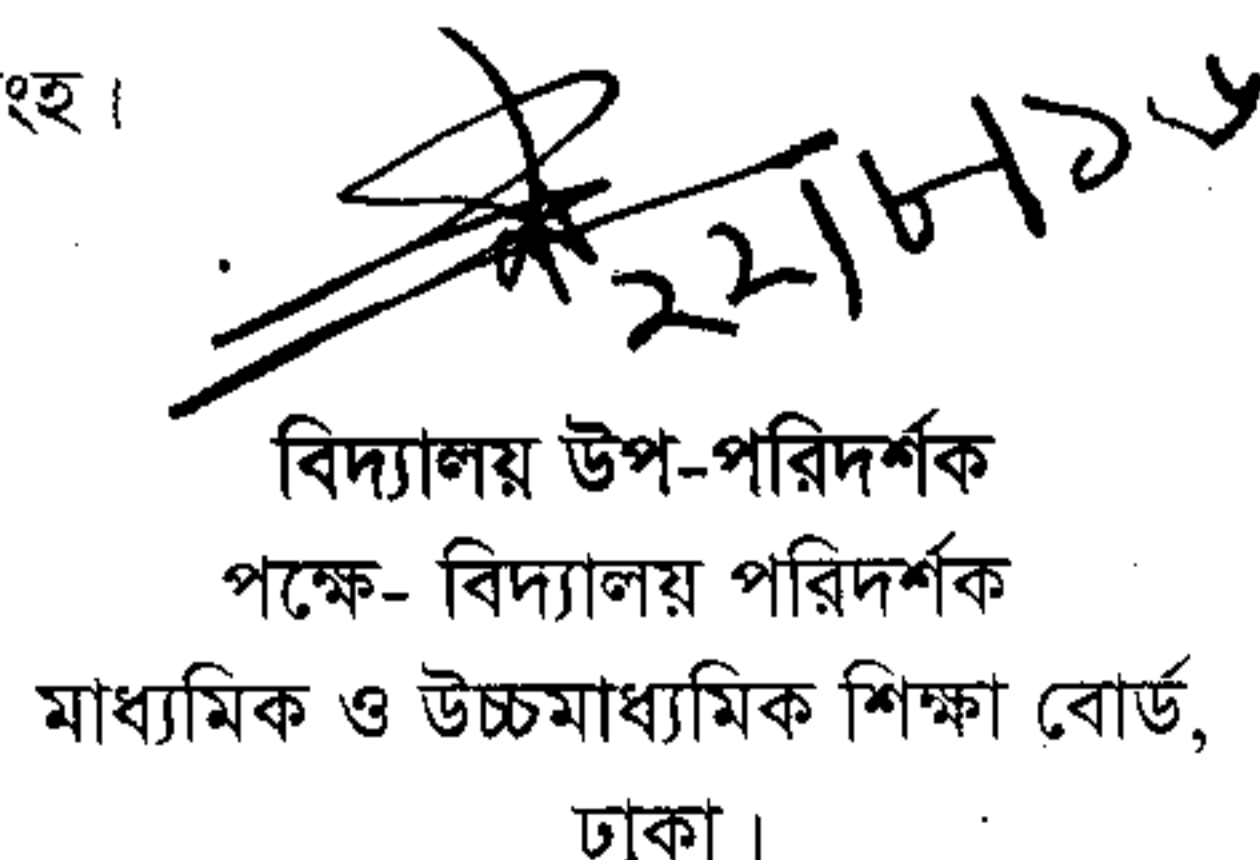 ংহ।
২২/৮/১৬
বিদ্যালয় উপ-পরিদর্শক
পক্ষে- বিদ্যালয় পরিদর্শক
মাধ্যমিক ও উচ্চমাধ্যমিক শিক্ষা বোর্ড,
ঢাকা।